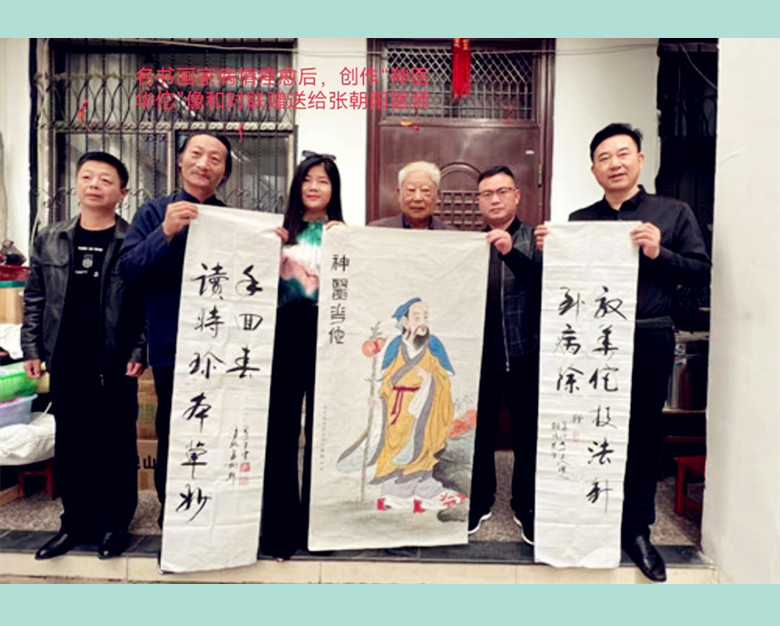 名书画家病情痊愈后，创作“神医
华佗”像和对联赠送给张朝阳医师
神醫華佗
效華佗技法針
到病除
讀時珍本草妙
手回春